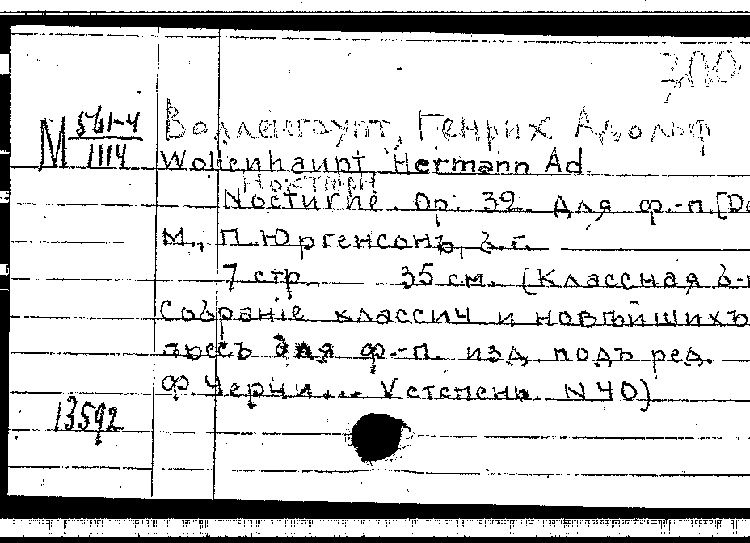 300
М 561-4
1114
Волленгаупт, Генрих Адольф
Wollenhaupt Hermann Ad.
Ноктюрн
Nocturne. Op. 39. Для ф.-п. [D
М., П. Юргенсонъ, б.г.
7 стр. 35 см. (Классная б-
Собраніе классич и новѣйшихъ
пьесъ для ф.-п. изд. подъ ред.
Ф. Черни... V степень N 40)
13592